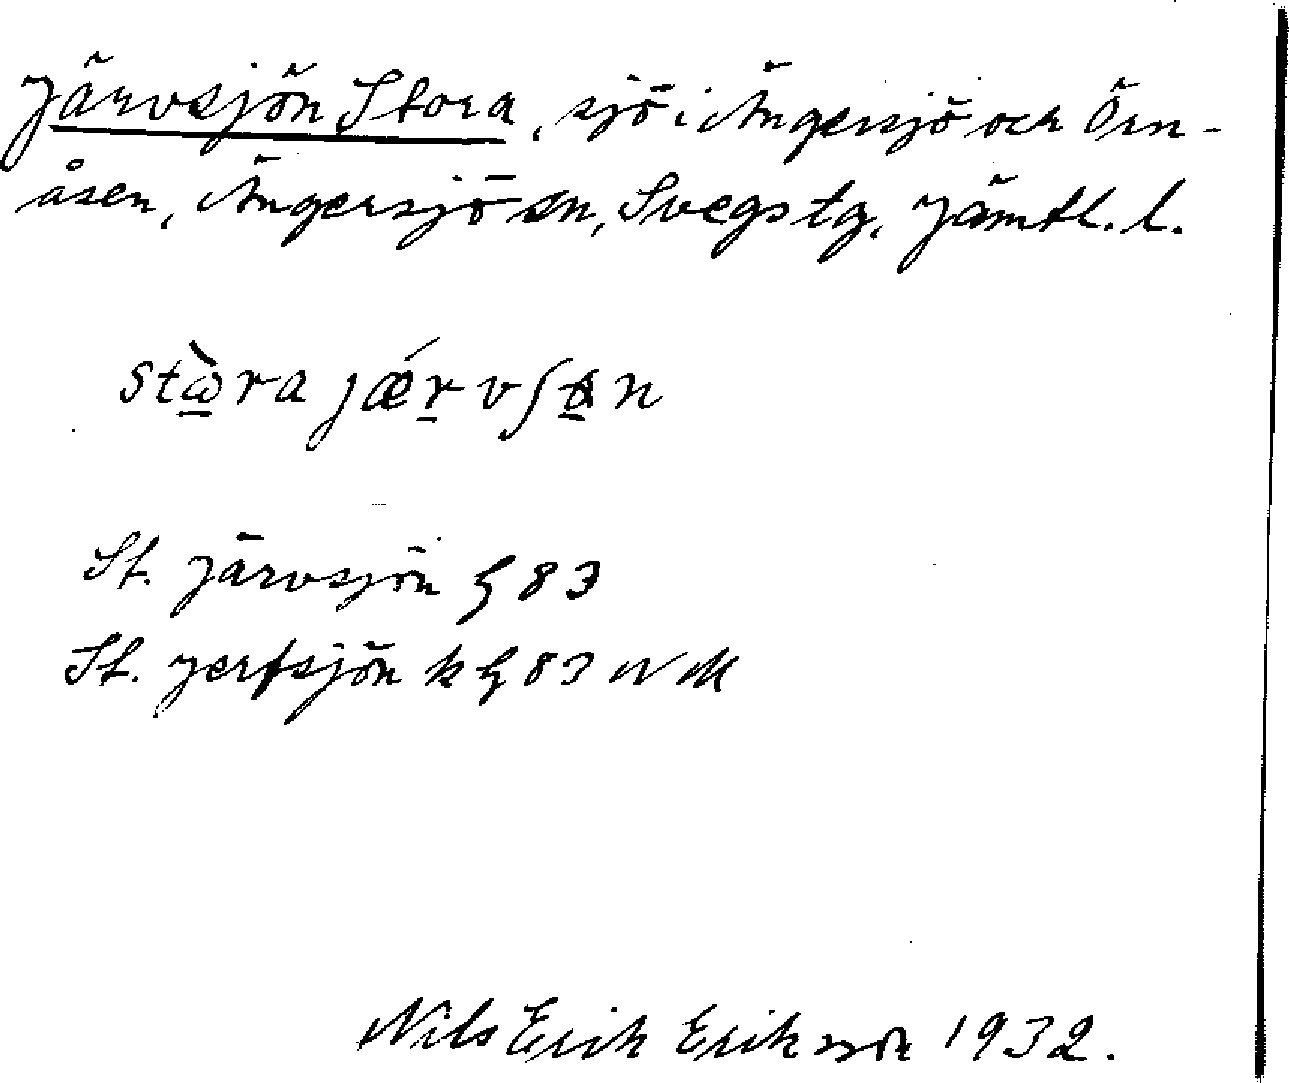 Järvsjön Stora, sjö i Ängersjö och Örn-
åsen, Ängersjö sn, Svegs tg, Jämtl. l.
stὼ̱ra jǽṟvʃn
St. Järvsjön § 83
St. Jerfsjön k § 83 NM
Nils Erik Eriksson 1932.